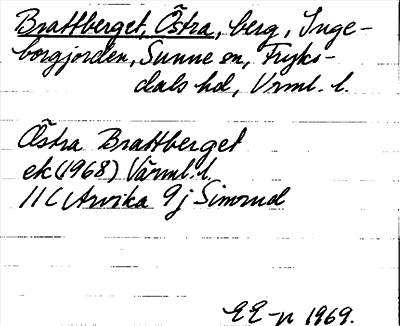 Brattberget, Östra, berg, Inge-
borgjorden, Sunne sn, Fryks-
dals hd, Vrml. l.
Östra Brattberget
ek (1968) Värml. l.
11C Arvika 9j Simsrud
EE-n 1969.